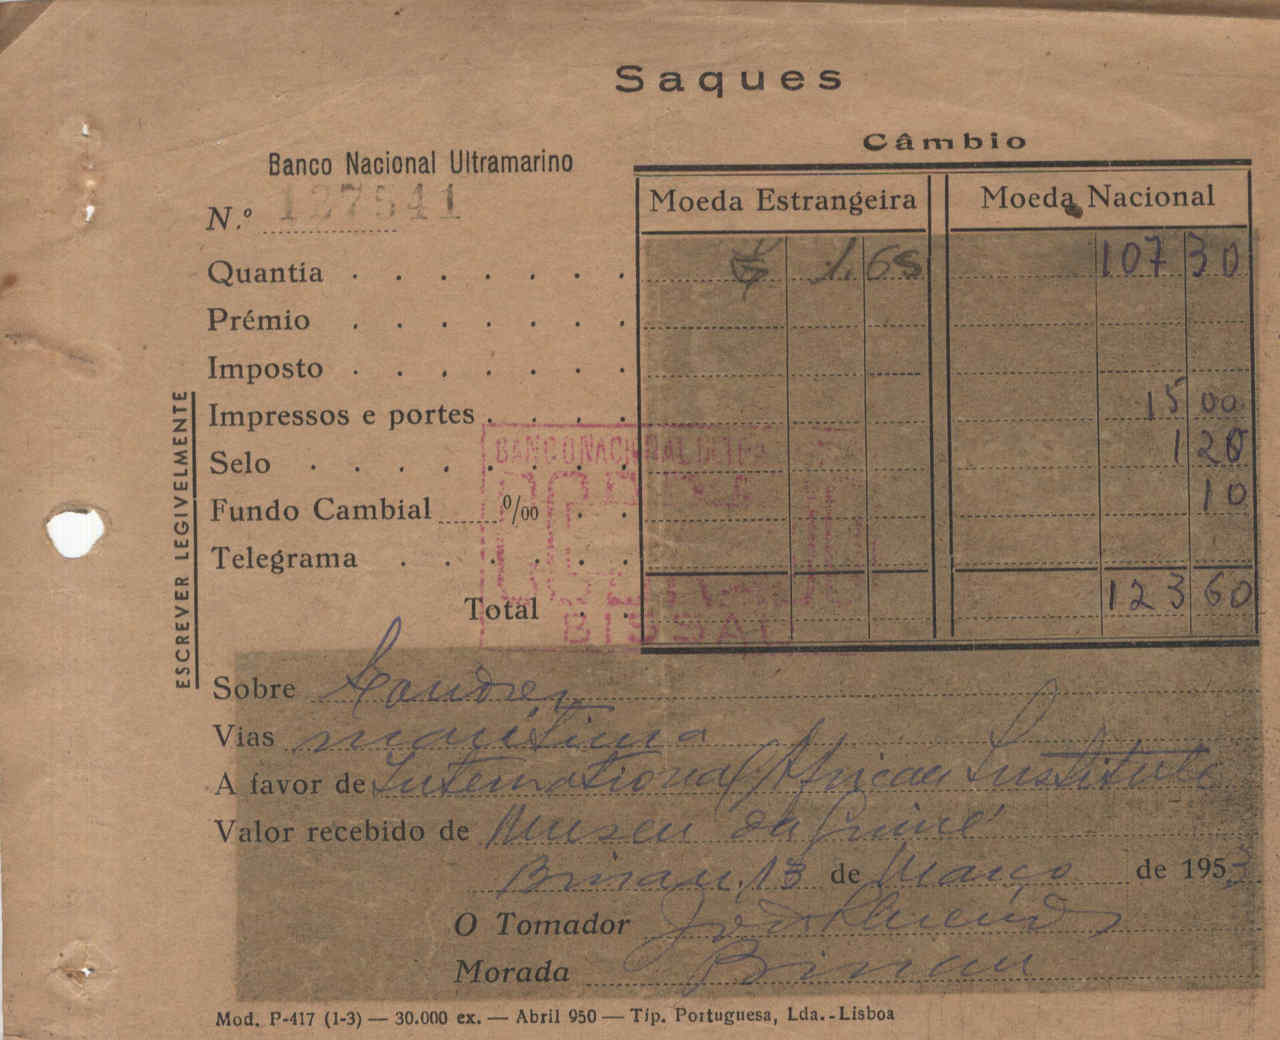 Saques
Câmbio
Banco Nacional Ultramarino
N.º 127541
Moeda Estrangeira Moeda Nacional
Quantia . . . . . . . 1.6s 107 30
Prémio . . . . . . .
Imposto . . . . . . .
Impressos e portes . . . . 15 00
Selo . . . . . . . . 1 20
Fundo Cambial ......⁰/₀₀ . . 10
Telegrama . . . . . .
Total . . 123 60
BANCO NACIONAL
BISSAU
ESCREVER LEGIVELMENTE
Sobre Londres
Vias marítima
A favor de International African Institute
Valor recebido de Museu da Guiné
Bissau, 13 de Março de 1953
O Tomador
Morada Bissau
Mod. P-417 (1-3) — 30.000 ex. — Abril 950 — Tip. Portuguesa, Lda. - Lisboa